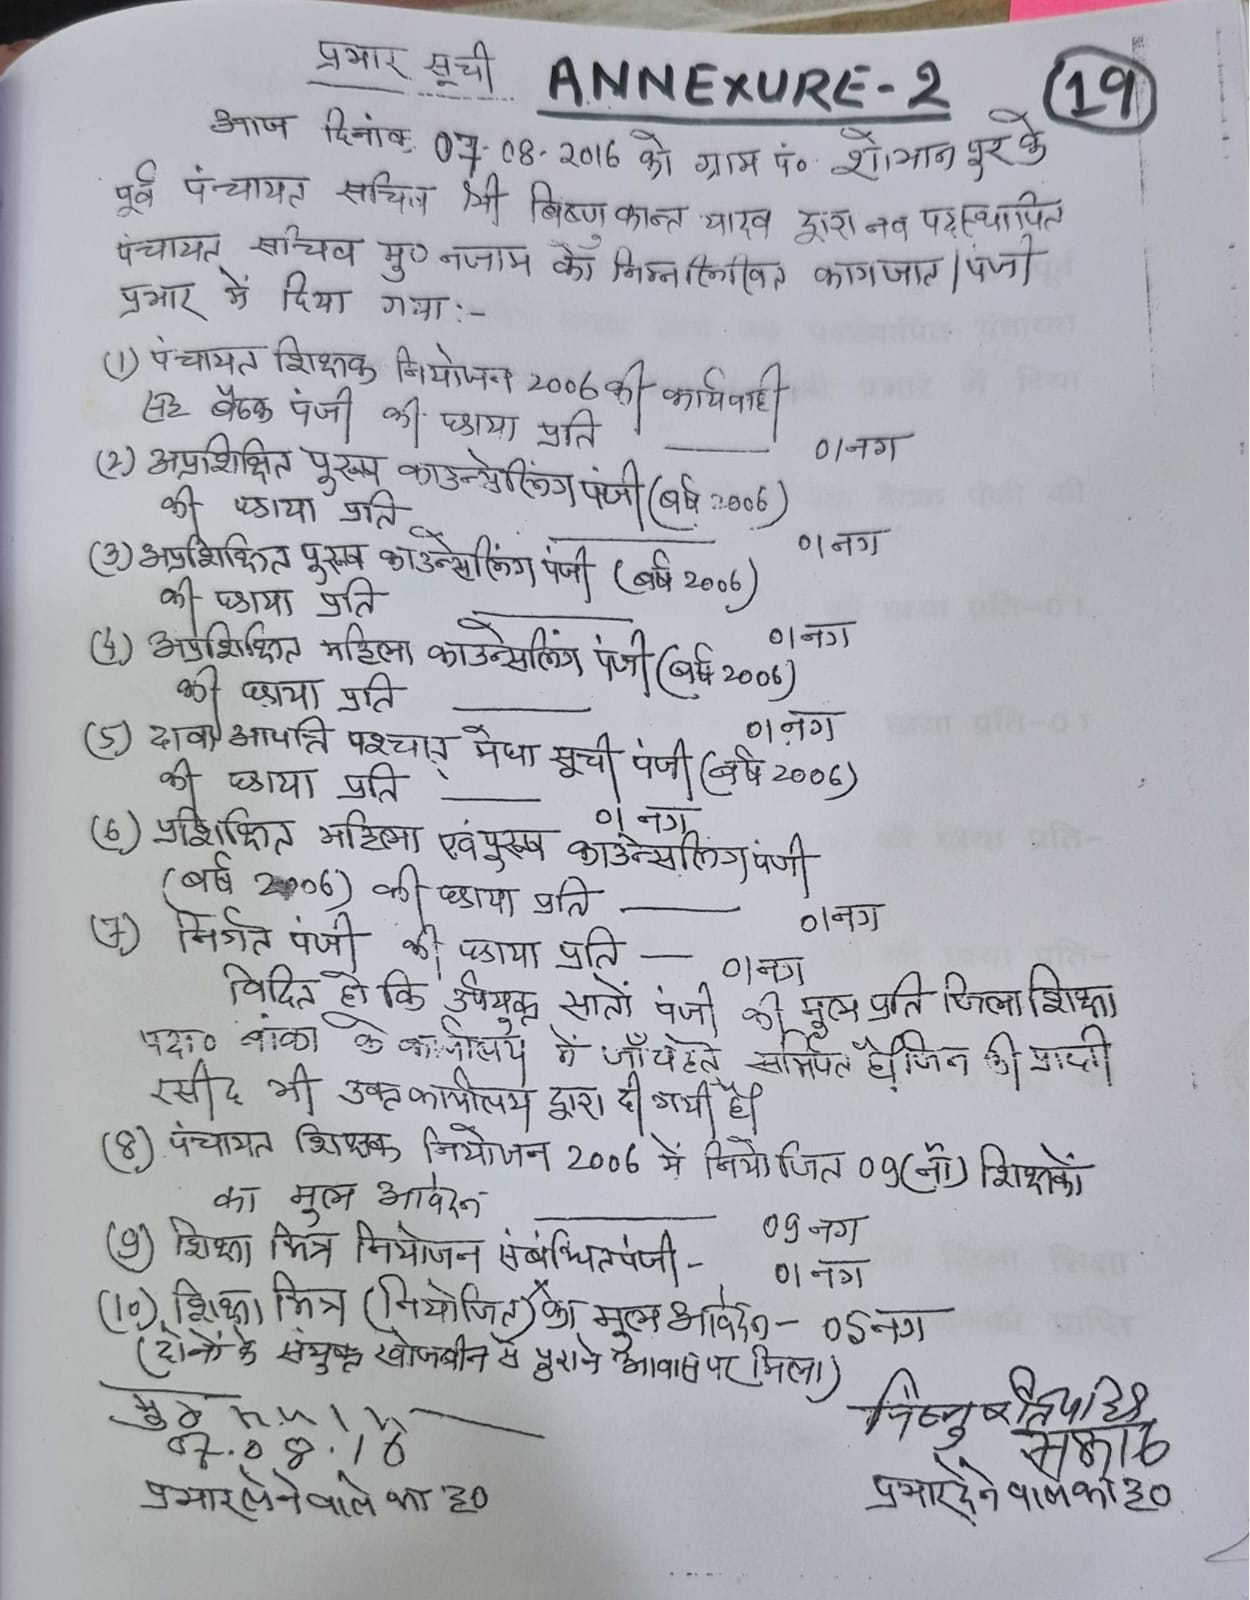 प्रभार सूची ANNEXURE-2 19
आज दिनांक 07-08-2016 को ग्राम पं० शोभानपुर के
पूर्व पंचायत सचिव श्री बिष्णु कान्त यादव द्वारा नव पदस्थापित
पंचायत सचिव मु० नजाम को निम्नलिखित कागजात/पंजी
प्रभार में दिया गया:-
(1) पंचायत शिक्षक नियोजन 2006 की कार्यवाही
सह बैठक पंजी की छाया प्रति — 01नग
(2) अप्रशिक्षित पुरूष काउन्सेलिंग पंजी (बर्ष 2006)
की छाया प्रति — 01नग
(3) अप्रशिक्षित पुरूष काउन्सेलिंग पंजी (बर्ष 2006)
की छाया प्रति — 01नग
(4) अप्रशिक्षित महिला काउन्सेलिंग पंजी (बर्ष 2006)
की छाया प्रति — 01नग
(5) दावा आपत्ति पश्चात् मेधा सूची पंजी (बर्ष 2006)
की छाया प्रति — 01 नग
(6) प्रशिक्षित महिला एवं पुरूष काउन्सेलिंग पंजी
(बर्ष 2006) की छाया प्रति — 01नग
(7) निर्गत पंजी की छाया प्रति — 01नग
विदित हो कि उपयुक्त सातों पंजी की मुल प्रति जिला शिक्षा
पदा० बांका के कार्यालय में जाँच हेतु समर्पित है, जिन की प्राप्ती
रसीद भी उक्त कार्यालय द्वारा दी गयी है।
(8) पंचायत शिक्षक नियोजन 2006 में नियोजित 09(नौ) शिक्षकों
का मुल आवेदन — 09 नग
(9) शिक्षा मित्र नियोजन संबंधित पंजी - 01 नग
(10) शिक्षा मित्र (नियोजित) का मुल आवेदन - 05नग
(दोनों के संयुक्त खोजबीन से पुराने आवास पर मिला)
07.08.16
प्रभार लेने वाले का ह०
प्रभार देने वाले का ह०